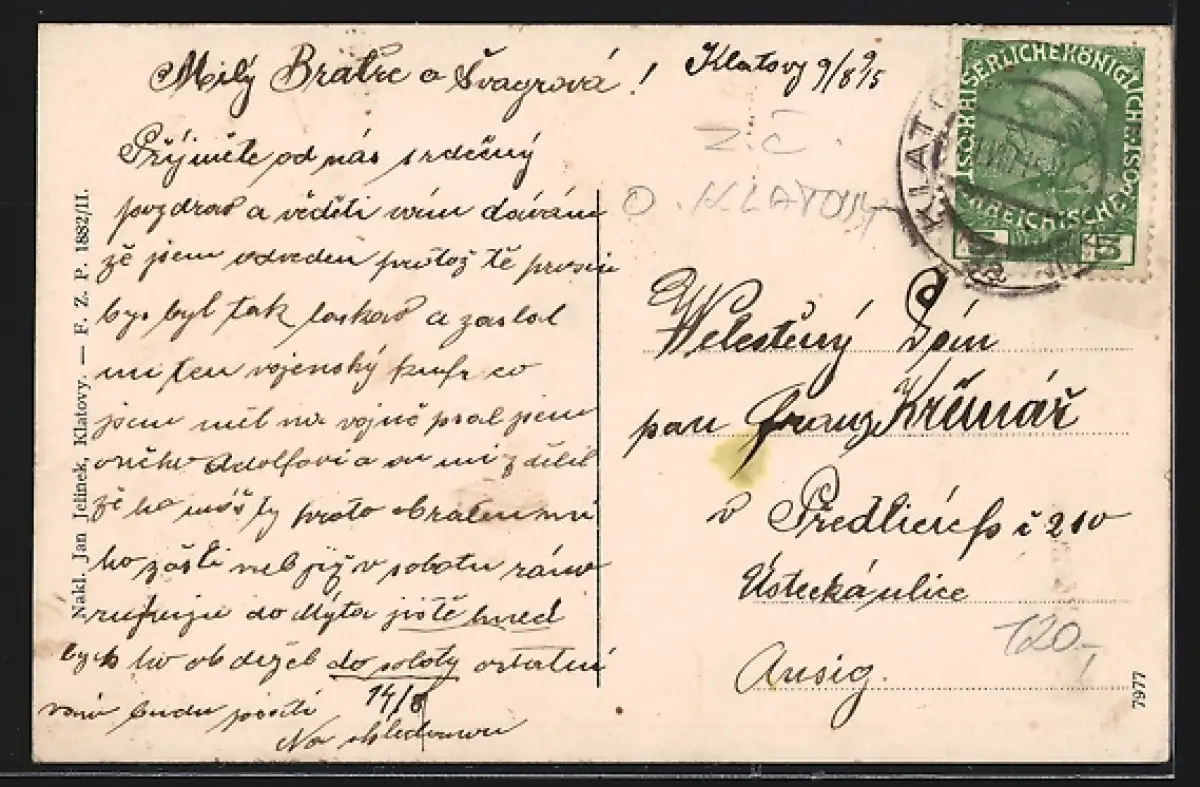 Milý Bratře a Švagrová!
Klatovy 9/8 915
Příjměte od nás srdečný
pozdrav a věděti vám dávám
že jsem odveden protož tě prosim
bys byl tak laskav a zaslal
mi ten vojenský kufr co
jsem měl na vojně psal jsem
oněho Adolfovi a on mi zdělil
že ho máš ty proto obratem mi
ho zašli neb již v sobotu ráno
rukuju do Mýta jistě hned
bych ho obdržel do soboty ostatní
14/8
vám budu psáti
Na shledanou
Nakl. Jan Jelínek, Klatovy. — F. Z. P. 1882/II.
Z.Č.
O. KLATOVY
KAISERLICHE KÖNIGLICHE ÖSTERREICHISCHE POST
5 5
KLATO
Welestěný Dóm
pan Franz Křimář
v Předlicích č 210
Ústecká ulice
Ausig.
120,-
7977